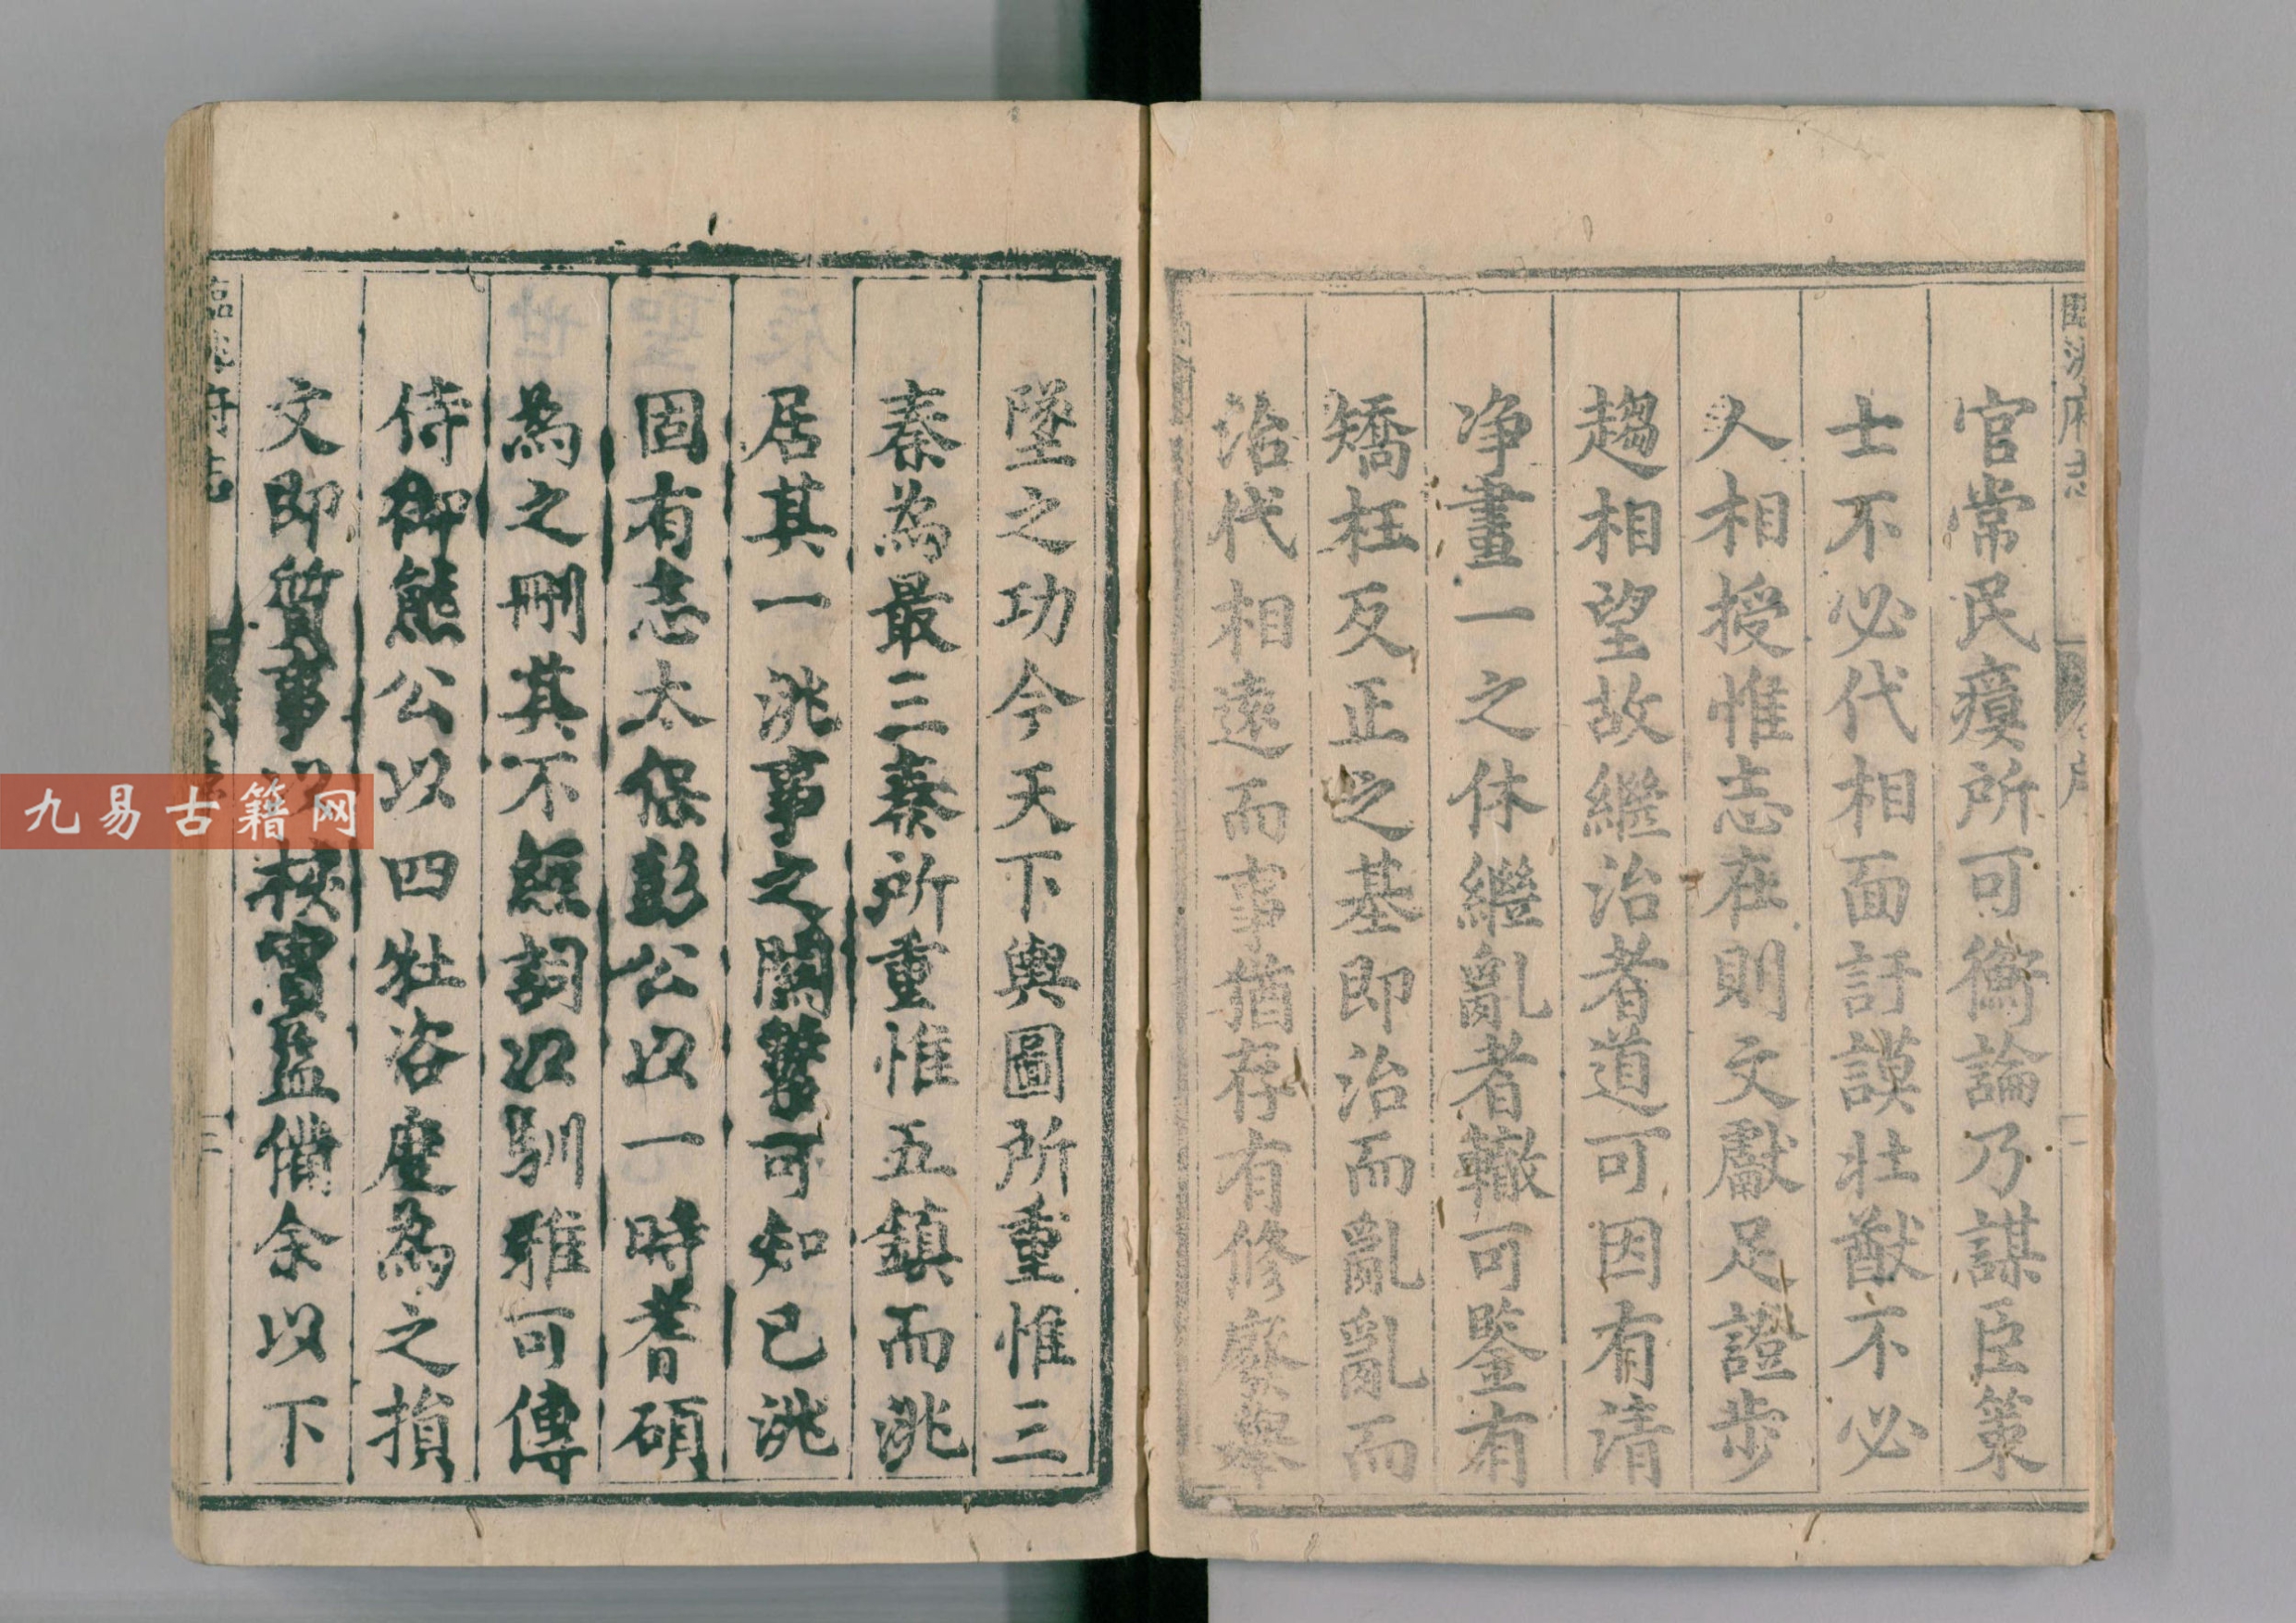 官常民瘼所可衡論乃謀臣策
士不必代相面訏謨壯猷不必
人相授惟志在則文獻足證步
趨相望故繼治者道可因有清
净畫一之休繼亂者轍可鑒有
矯枉反正之基即治而亂亂而
治代相遠而事猶存有修廢舉
墜之功今天下輿圖所重惟三
秦為最三秦所重惟五鎮而洮
居其一洮事之關繫可知已洮
固有志太保彭公以一時耆碩
為之刪其不經詞以馴雅可傳
侍御熊公以四牡咨度為之損
文即質事以核實益僃余以下
臨洮府志
九易古籍网